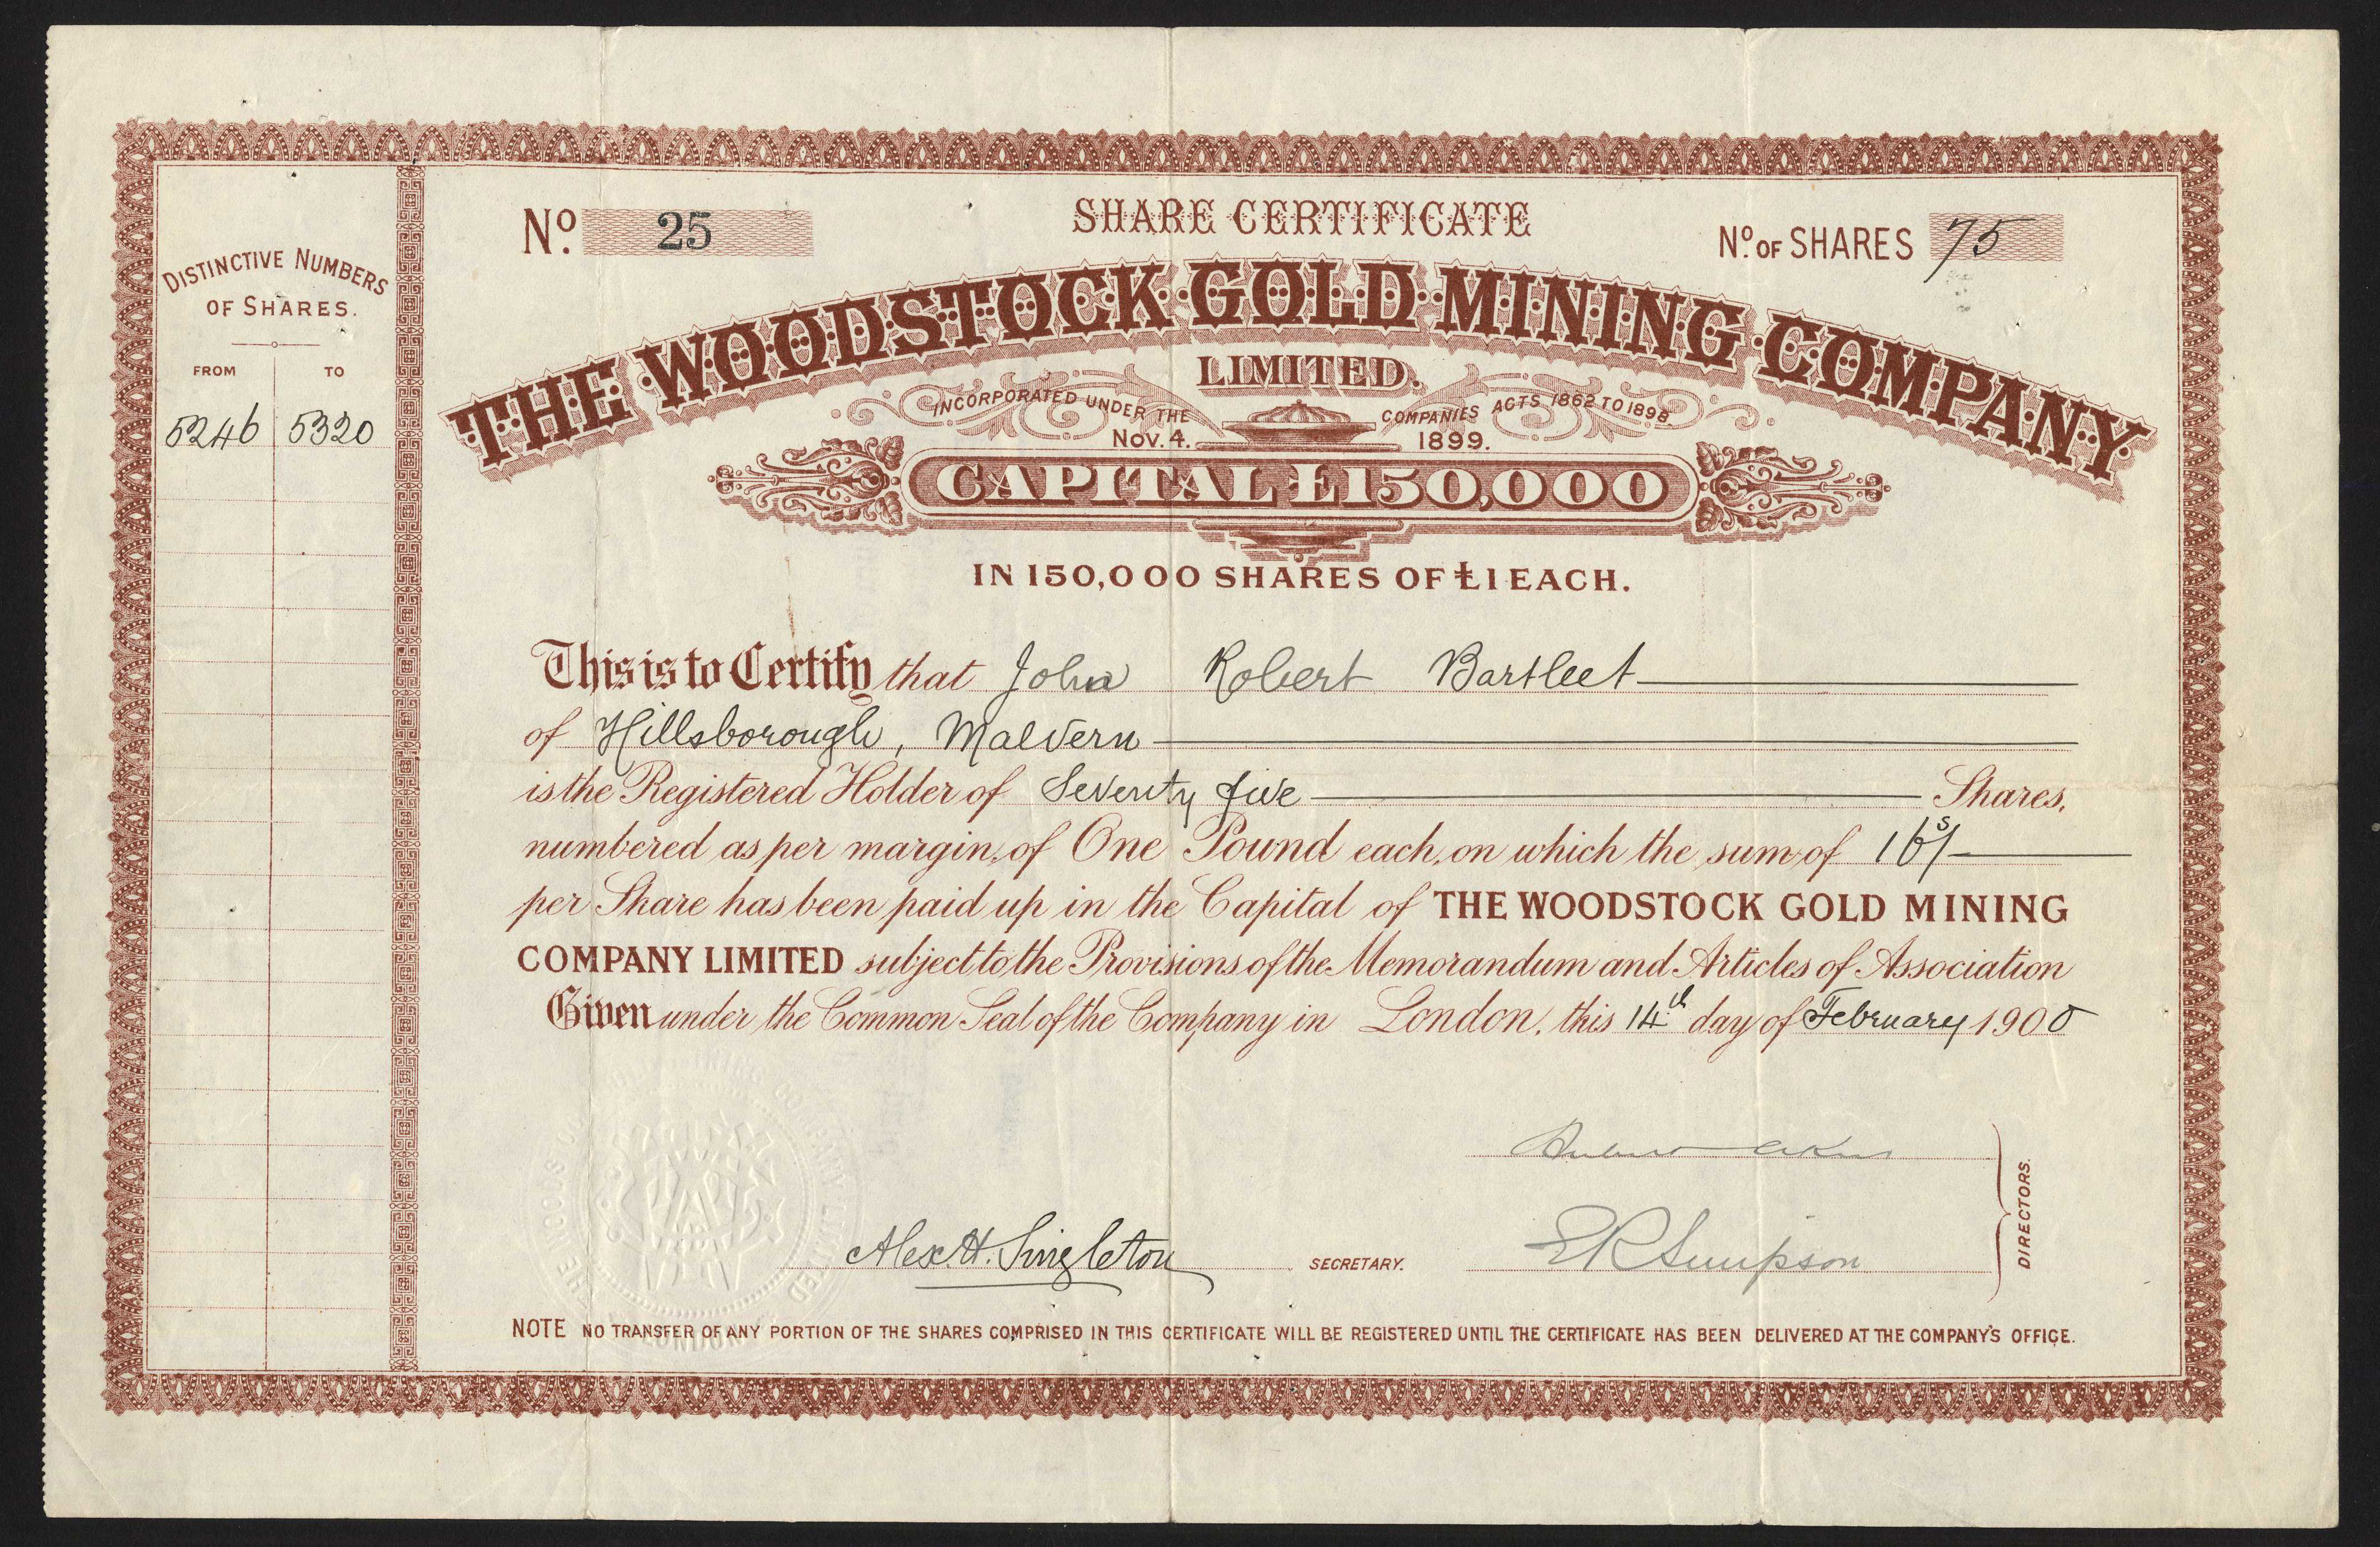 DISTINCTIVE NUMBERS
OF SHARES.
FROM TO
5246 5320
No. 25
SHARE CERTIFICATE
No. OF SHARES 75
THE WOODSTOCK GOLD MINING COMPANY
LIMITED.
INCORPORATED UNDER THE COMPANIES ACTS 1862 TO 1898.
NOV. 4. 1899.
CAPITAL £150,000
IN 150,000 SHARES OF £1 EACH.
This is to Certify that John Robert Bartleet
of Hillsborough, Malvern
is the Registered Holder of Seventy five Shares,
numbered as per margin, of One Pound each, on which the sum of 16s/-
per Share has been paid up in the Capital of THE WOODSTOCK GOLD MINING
COMPANY LIMITED subject to the Provisions of the Memorandum and Articles of Association
Given under the Common Seal of the Company in London, this 14th day of February 1900
Alex H. Singleton SECRETARY.
E R Simpson
DIRECTORS.
NOTE NO TRANSFER OF ANY PORTION OF THE SHARES COMPRISED IN THIS CERTIFICATE WILL BE REGISTERED UNTIL THE CERTIFICATE HAS BEEN DELIVERED AT THE COMPANY'S OFFICE.